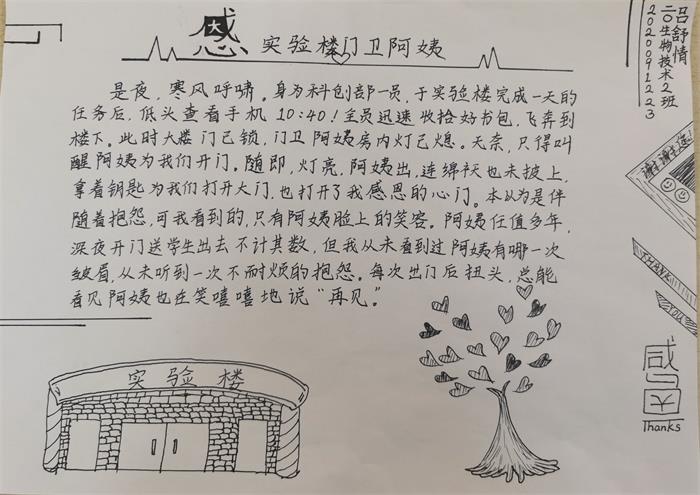 感
大
实验楼门卫阿姨
是夜，寒风呼啸。身为科创部一员，于实验楼完成一天的
任务后，低头查看手机 10:40！全员迅速收拾好书包，飞奔到
楼下。此时大楼门已锁，门卫阿姨房内灯已熄。无奈，只得叫
醒阿姨为我们开门。随即，灯亮，阿姨出，连绵袄也未披上，
拿着钥匙为我们打开大门，也打开了我感恩的心门。本以为是伴
随着抱怨，可我看到的，只有阿姨脸上的笑容。阿姨任值多年，
深夜开门送学生出去不计其数，但我从未看到过阿姨有哪一次
皱眉，从未听到一次不耐烦的抱怨。每次出门后扭头，总能
看见阿姨也在笑嘻嘻地说“再见”。
吕舒情
二〇生物技术2班
2020091223
谢谢您！
THANK
感
恩
Thanks
实验楼